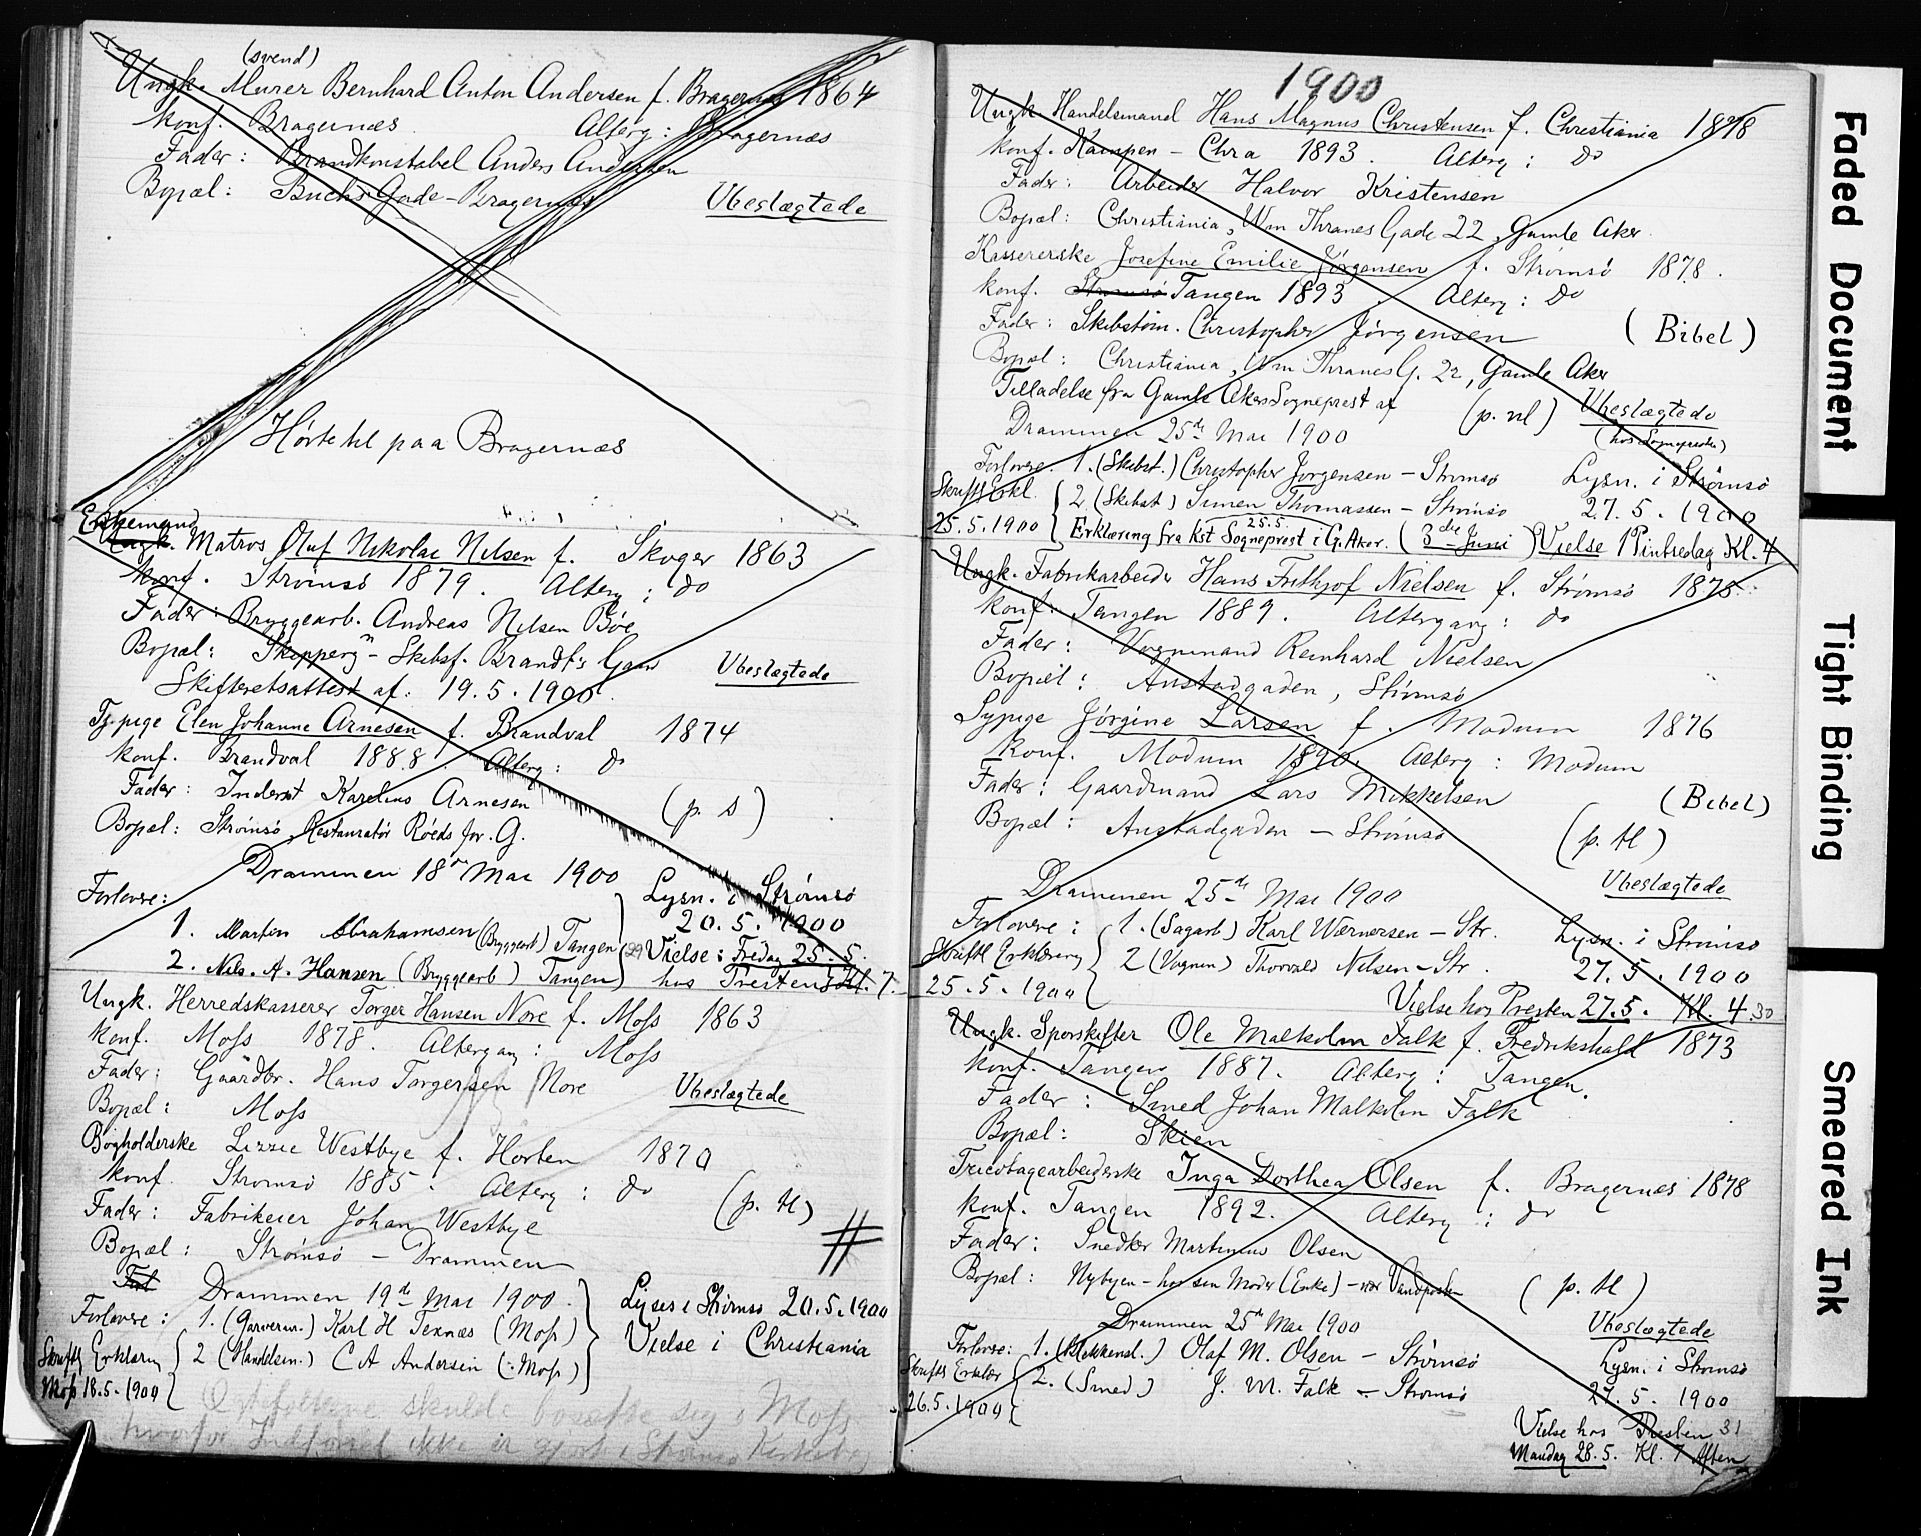 (svend)
Ungk. Murer Bernhard Anton Andersen f. Bragernæs 1864
konf. Bragernæs. Alterg: Bragernæs
Fader: Brandkonstabel Anders Andersen
Bopæl: Buchs Gade - Bragernæs Ubeslægtede
Hørte til paa Bragernæs
Enkemand
Ungk. Matros Oluf Nikolai Nilsen f. Skoger 1863
konf. Strømsø 1879. Alterg: do
Fader: Bryggearb. Andreas Nilsen Bøe
Bopæl: Skipperg - Skibsf. Brandt's Gaar Ubeslægtede
Skifteretsattest af: 19.5.1900.
Tj.pige Elen Johanne Arnesen f. Brandval 1874
konf. Brandval 1888. Alterg: do
Fader: Inderst Karelius Arnesen
Bopæl: Strømsø, Restauratør Røeds for. G. (p. s)
Drammen 18de Mai 1900
Forlovere: Lysn. i Strømsø
1. Martin Abrahamsen (Bryggearb) Tangen 20.5.1900
2. Nils. A. Hansen (Bryggearb) Tangen 29 Vielse: Fredag 25.5.
hos Presten Kl. 7.
Ungk. Herredskasserer Torger Hansen Nore f. Moss 1863
konf. Moss 1878. Altergang: Moss
Fader: Gaardbr. Hans Torgersen Nore Ubeslægtede
Bopæl: Moss
Bogholderske Lizzie Westbye f. Horten 1870
konf. Strømsø 1885. Alterg: do (p. tl)
Fader: Fabrikeier Johan Westbye
Bopæl: Strømsø - Drammen #
Drammen 19de Mai 1900. Lyses i Strømsø 20.5.1900
Forlovere: 1. (Garverm.) Karl H Texnæs (Moss) Vielse i Christiania
Skriftl Erklæring 2 (Handelsm.) C A Andersen (Moss)
Moss 18.5.1900
skulde bosætte sig i Moss
hvorfor Indførsel ikke er gjort i Strømsø Kirkebog
1900
Ungk. Handelsmand Hans Magnus Christensen f. Christiania 1878
konf. Kampen - Chra 1893. Alterg: do
Fader: Arbeider Halvor Kristensen
Bopæl: Christiania, Wm Thranes Gade 22, Gamle Aker.
Kassererske Josefine Emilie Jørgensen f. Strømsø 1878.
konf. Strømsø Tangen 1893. Alterg: do
Fader: Skibstøm. Christopher Jørgensen (Bibel)
Bopæl: Christiania, Wm Thranes G. 22, Gamle Aker
Tilladelse fra Gamle Akers Sogneprest af (p. vl) Ubeslægtede
Drammen 25de Mai 1900 (hos Sogneprest)
Forlovere. 1. (Skibst.) Christopher Jørgensen - Strømsø Lysn. i Strømsø
Skriftl Erkl. 2 (Skibst) Simen Thomassen - Strømsø 27.5.1900
25.5.1900 Erklæring fra Kst Sogneprest i G. Aker. 25.5. (3de Juni) Vielse 1 Pintsedag Kl. 4
Ungk. Fabrikarbeider Hans Frithjof Nielsen f. Strømsø 1875.
konf: Tangen 1889. Altergang: do
Fader: Vognmand Reinhard Nielsen
Bopæl: Austadgaden, Strømsø
Sypige Jørgine Larsen f. Modum 1876
konf. Modum 1890. Alterg: Modum
Fader: Gaardmand Lars Mikkelsen (Bibel)
Bopæl: Austadgaden - Strømsø (p. tl)
Drammen 25de Mai 1900 Ubeslægtede
Forlovere: 1. (Sagarb) Karl Wærnersen - Str. Lysn. i Strømsø
Skriftl Erklæring 2 (Vognm) Thorvald Nilsen - Str. 27.5.1900
25.5.1900 Vielse hos Presten 27.5. Kl. 4. 30
Ungk. Sporskifter Ole Malkolm Falk f. Fredrikshald 1873
konf. Tangen 1887. Alterg: Tangen.
Fader: Smed Johan Malkolm Falk
Bopæl: Skien
Tricotagearbeiderske Inga Dorthea Olsen f. Bragernæs 1878
konf. Tangen 1892. Alterg: do
Fader: Snedker Martinius Olsen
Bopæl: Nybyen - hos sin Moder (Enke) - ved Vandposten (p. tl)
Drammen 25de Mai 1900 Ubeslægtede
Forlovere: 1. (Blikkensl.) Olaf M. Olsen - Strømsø Lysn. i Strømsø
Skriftl Erklær 2. (Smed) J. M. Falk - Strømsø 27.5.1900
26.5.1900 Vielse hos Presten 31
Mandag 28.5. Kl. 7 Aften
Faded Document
Tight Binding
Smeared Ink